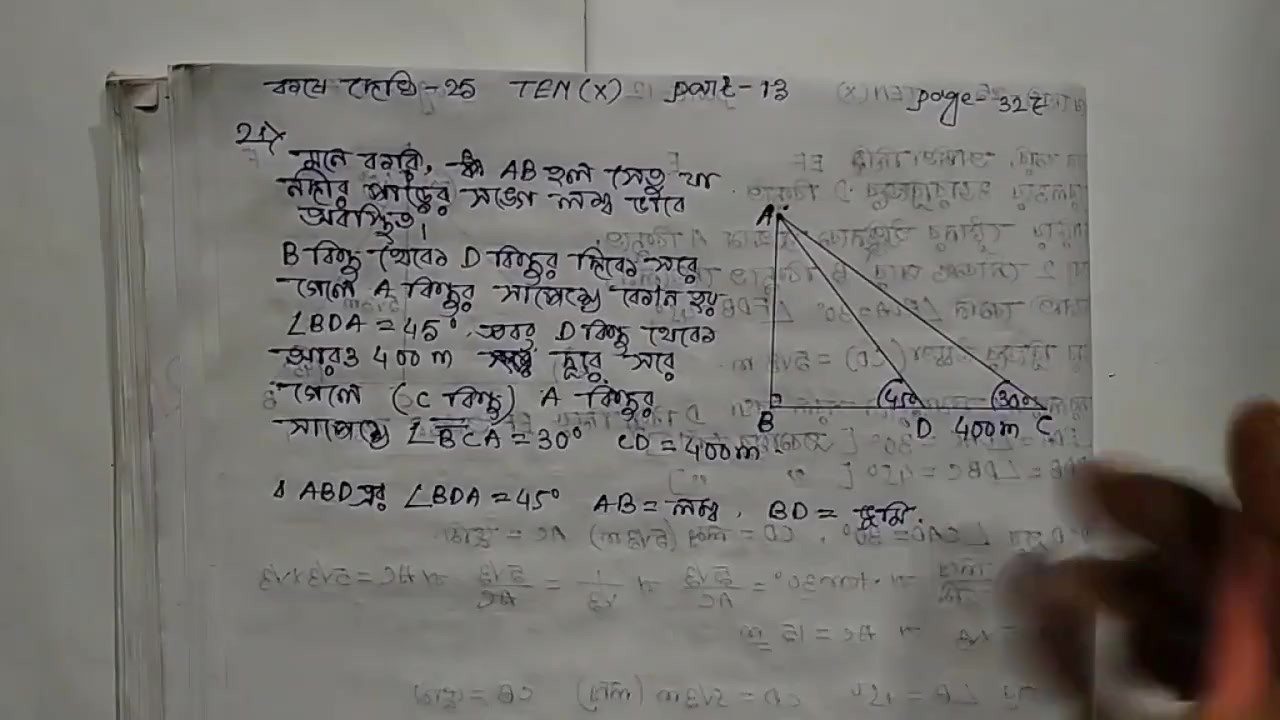 কষে দেখি-25 TEN(X) part-13 page-322
21>
মনে করি, AB হল সেতু যা
নদীর পাড়ের সঙ্গে লম্ব ভাবে
অবস্থিত।
B বিন্দু থেকে D বিন্দুর দিকে সরে
গেলে A বিন্দুর সাপেক্ষে কোন হয়
∠BDA = 45°, এবং D বিন্দু থেকে
আরও 400 m দূরে সরে
গেলে (C বিন্দু) A বিন্দুর
সাপেক্ষে ∠BCA = 30° CD = 400m
A
B
45°
30°
D 400m C
Δ ABD এর ∠BDA = 45° AB = লম্ব, BD = ভূমি.